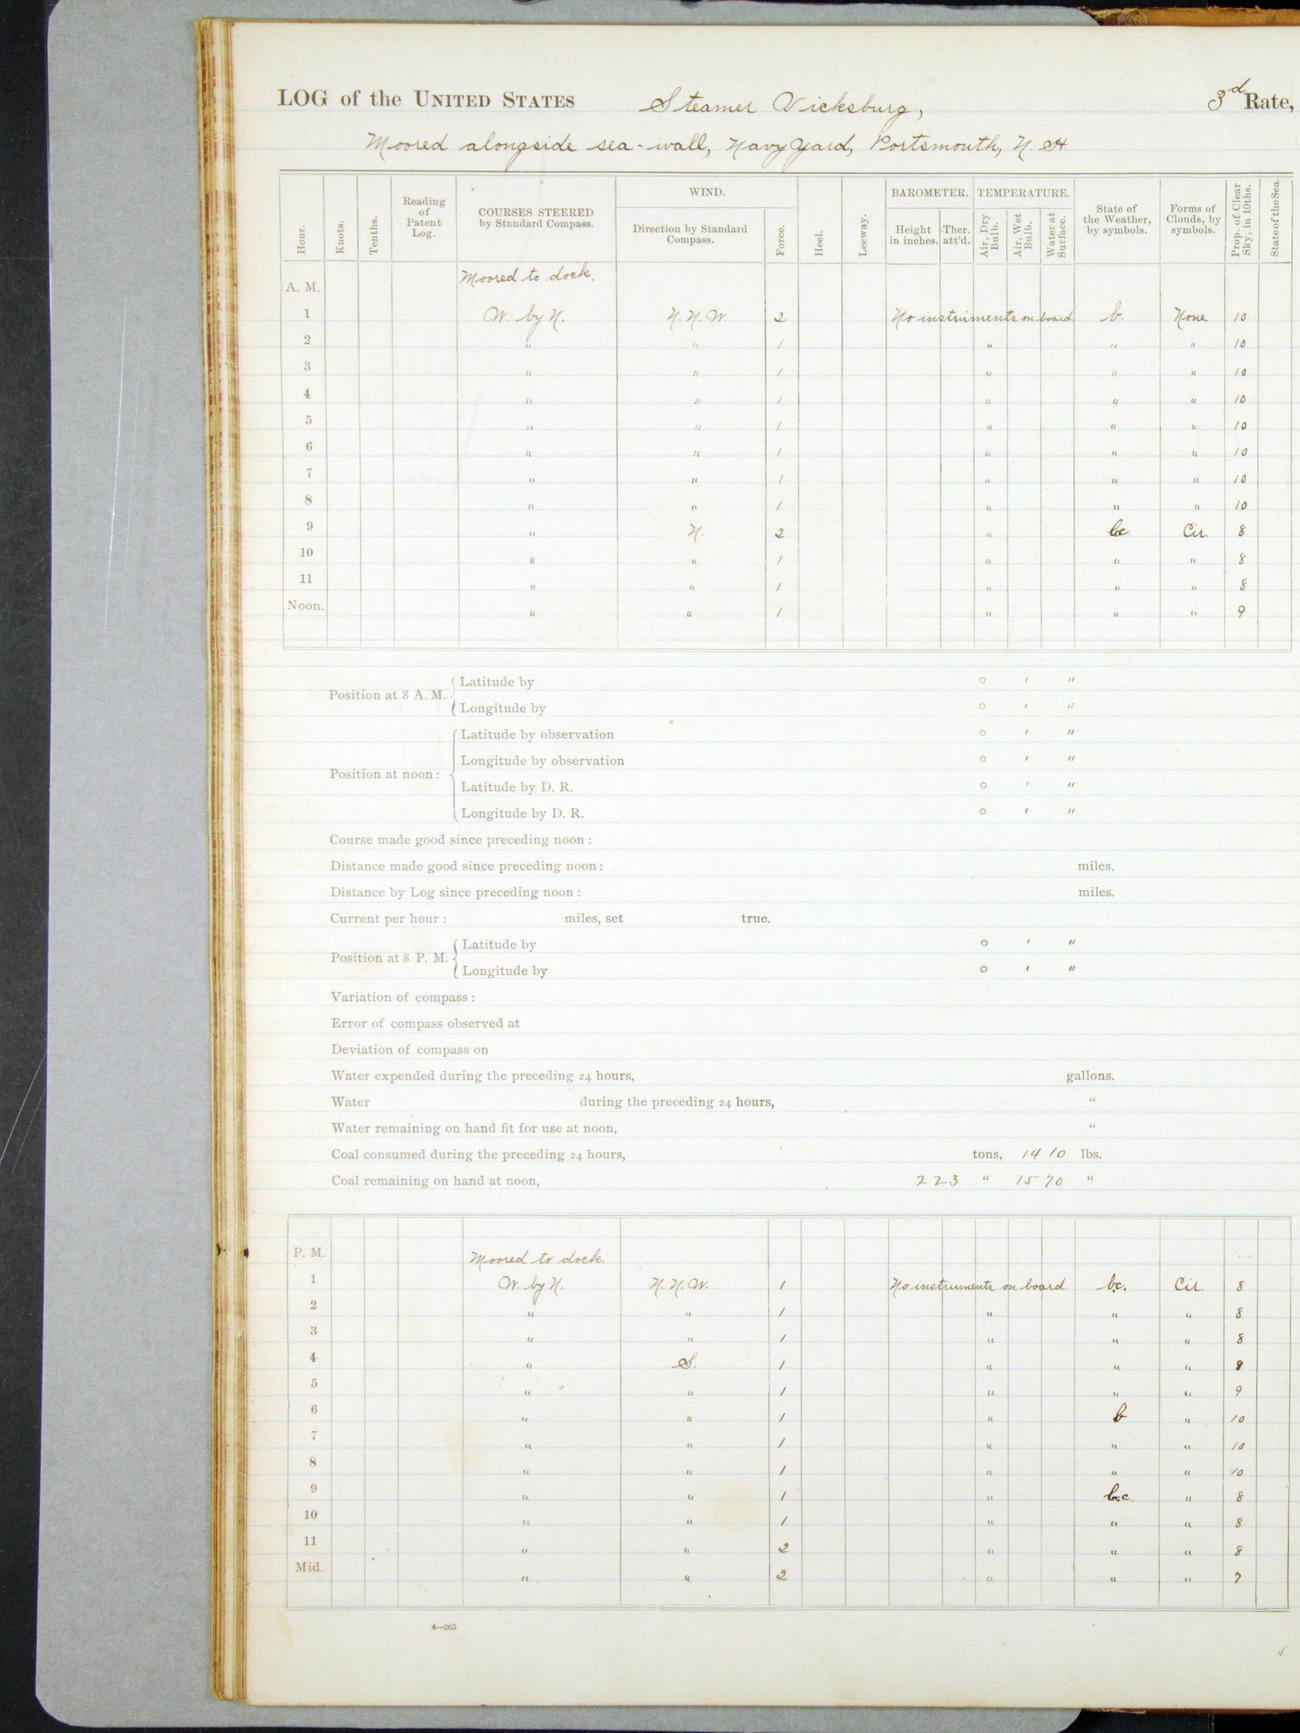 LOG of the UNITED STATES Steamer Vicksburg, 3d Rate,
Moored alongside sea-wall, Navy Yard, Portsmouth, N. H.
Hour. Knots. Tenths. Reading of Patent Log. COURSES STEERED by Standard Compass. WIND. Direction by Standard Compass. Force. Heel. Leeway. BAROMETER. Height in inches. Ther. att'd. TEMPERATURE. Air, Dry Bulb. Air, Wet Bulb. Water at Surface. State of the Weather, by symbols. Forms of Clouds, by symbols. Prop. of Clear Sky, in 10ths. State of the Sea.
A. M. Moored to dock.
1 W. by N. N. N. W. 2 No instruments on board b. None 10
2 " " 1 " " " 10
3 " " 1 " " " 10
4 " " 1 " " " 10
5 " " 1 " " " 10
6 " " 1 " " " 10
7 " " 1 " " " 10
8 " " 1 " " " 10
9 " N. 2 " bc Cir. 8
10 " " 1 " " " 8
11 " " 1 " " " 8
Noon. " " 1 " " " 9
Position at 8 A. M. { Latitude by ° ′ ″
Longitude by ° ′ ″
Position at noon: { Latitude by observation ° ′ ″
Longitude by observation ° ′ ″
Latitude by D. R. ° ′ ″
Longitude by D. R. ° ′ ″
Course made good since preceding noon:
Distance made good since preceding noon: miles.
Distance by Log since preceding noon: miles.
Current per hour: miles, set true.
Position at 8 P. M. { Latitude by ° ′ ″
Longitude by ° ′ ″
Variation of compass:
Error of compass observed at
Deviation of compass on
Water expended during the preceding 24 hours, gallons.
Water during the preceding 24 hours, "
Water remaining on hand fit for use at noon, "
Coal consumed during the preceding 24 hours, tons, 1410 lbs.
Coal remaining on hand at noon, 223 " 1570 "
P. M. Moored to dock.
1 W. by N. N. N. W. 1 No instruments on board bc. Cir. 8
2 " " 1 " " " 8
3 " " 1 " " " 8
4 " S. 1 " " " 8
5 " " 1 " " " 9
6 " " 1 " b " 10
7 " " 1 " " " 10
8 " " 1 " " " 10
9 " " 1 " bc " 8
10 " " 1 " " " 8
11 " " 2 " " " 8
Mid. " " 2 " " " 7
4—265